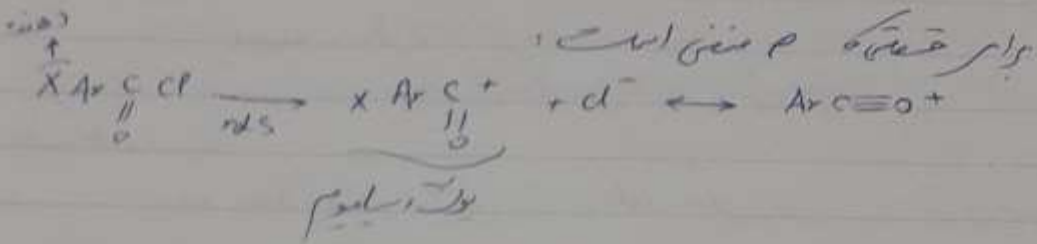 برای قسمتی که ρ منفی است :
دهنده
X Ar C Cl → X Ar C + + Cl⁻ ↔ Ar C≡O +
|| rds ||
O O
یون آسیلیوم